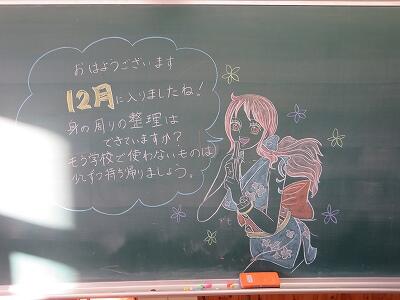 おはようございます
12月に入りましたね!
身の周りの整理は
できていますか?
もう学校で使わないものは
少しずつ持ち帰りましょう。